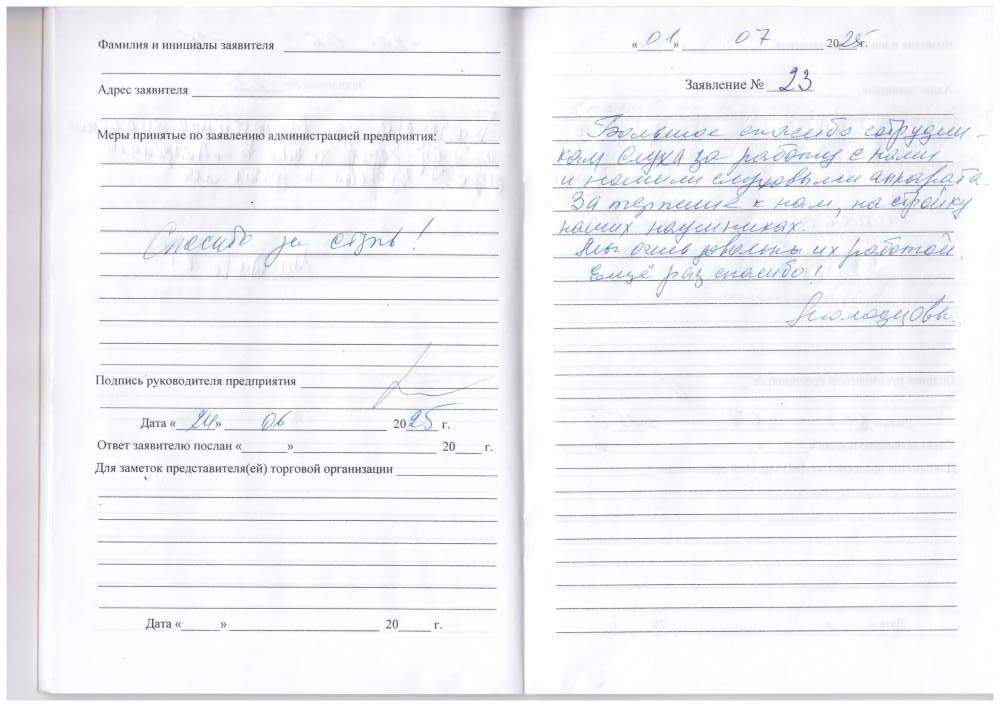 Фамилия и инициалы заявителя
Адрес заявителя
Меры принятые по заявлению администрацией предприятия:
Спасибо за отзыв!
Подпись руководителя предприятия
Дата «24» 06 2025 г.
Ответ заявителю послан «» 20 г.
Для заметок представителя(ей) торговой организации
Дата «» 20 г.
«01» 07 2025г.
Заявление № 23
Большое спасибо сотрудни-
кам Слуха за работу с нами
и нашими слуховыми аппарата.
За терпение к нам, настройку
наших наушниках.
Мы очень довольны их работой.
Ещё раз спасибо!